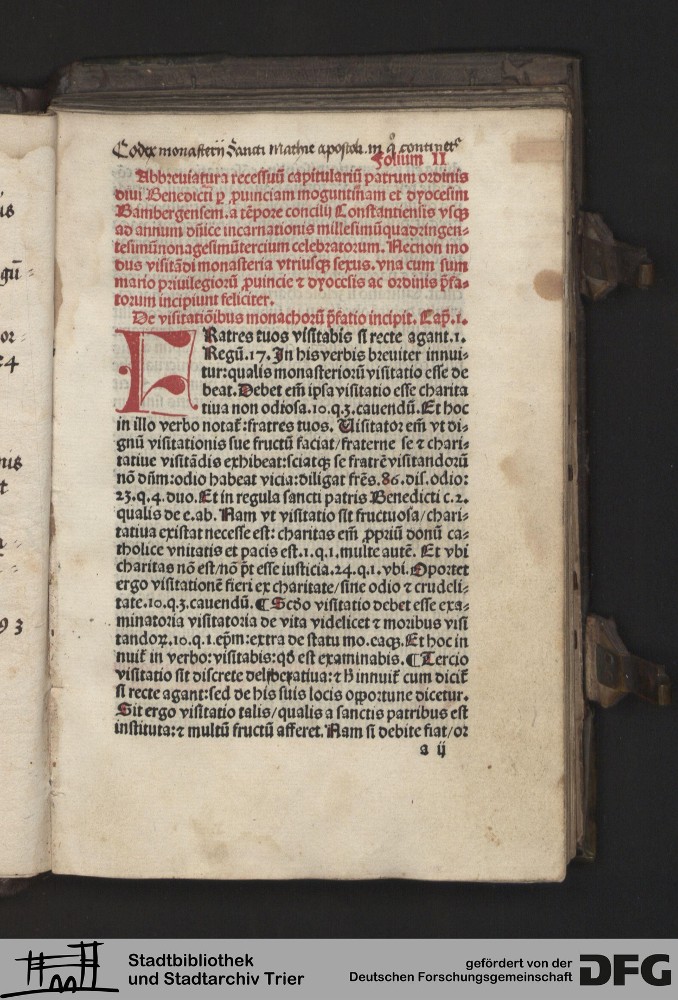 Codex monasterij Sancti Mathie apostoli. in q̊ continetᷣ
Folium II
Abbreuiatura recessuū capitulariū patrum ordinis
diui Benedicti ꝑ ꝓuinciam moguntinam et dyocesim
Bambergensem. a tēpore concilij Constantiensis vsqꝫ
ad annum dn̄ice incarnationis millesimū quadringen-
tesimū nonagesimū tercium celebratorum. Necnon mo
dus visitādi monasteria vtriusqꝫ sexus. vna cum sum
mario priuilegiorū ꝓuincie ⁊ dyocesis ac ordinis p̄fa-
torum incipiunt feliciter.
De visitatiōibus monachorū p̄fatio incipit. Cap̄. 1.
FRatres tuos visitabis si recte agant. 1.
Regū. 17. In his verbis breuiter innui-
tur: qualis monasteriorū visitatio esse de
beat. Debet em̄ ipsa visitatio esse charita
tiua non odiosa. 10. q. 3. cauendū. Et hoc
in illo verbo notat᷑: fratres tuos. Uisitator em̄ vt di-
gnū visitationis sue fructū faciat/fraterne se ⁊ chari-
tatiue visitādis exhibeat: sciatqꝫ se fratrē visitandorū
nō dn̄m: odio habeat vicia: diligat fr̄es. 86. dis. odio:
23. q. 4. duo. Et in regula sancti patris Benedicti c. 2.
qualis de e. ab. Nam vt visitatio sit fructuosa/chari-
tatiua existat necesse est: charitas em̄ ꝓpriū donū ca-
tholice vnitatis et pacis est. 1. q. 1. multe autē. Et vbi
charitas nō est/nō p̄t esse iusticia. 24. q. 1. vbi. Oportet
ergo visitationē fieri ex charitate/sine odio ⁊ crudeli-
tate. 10. q. 3. cauendū. ¶ Scd̄o visitatio debet esse exa-
minatoria visitatoria de vita videlicet ⁊ moribus visi
tandoꝝ. 10. q. 1. ep̄m: extra de statu mo. ea qꝫ. Et hoc in
nuit᷑ in verbo: visitabis: qd̄ est examinabis. ¶ Tercio
visitatio sit discrete deliberatiua: ⁊ h̄ innuit᷑ cum dicit᷑
si recte agant: sed de his suis locis oportune dicetur.
Sit ergo visitatio talis/qualis a sanctis patribus est
instituta: ⁊ multū fructū afferet. Nam si debite fiat/or
a ij
ū-
or-
24
nis
t
93
Stadtbibliothek
und Stadtarchiv Trier
gefördert von der
Deutschen Forschungsgemeinschaft
DFG